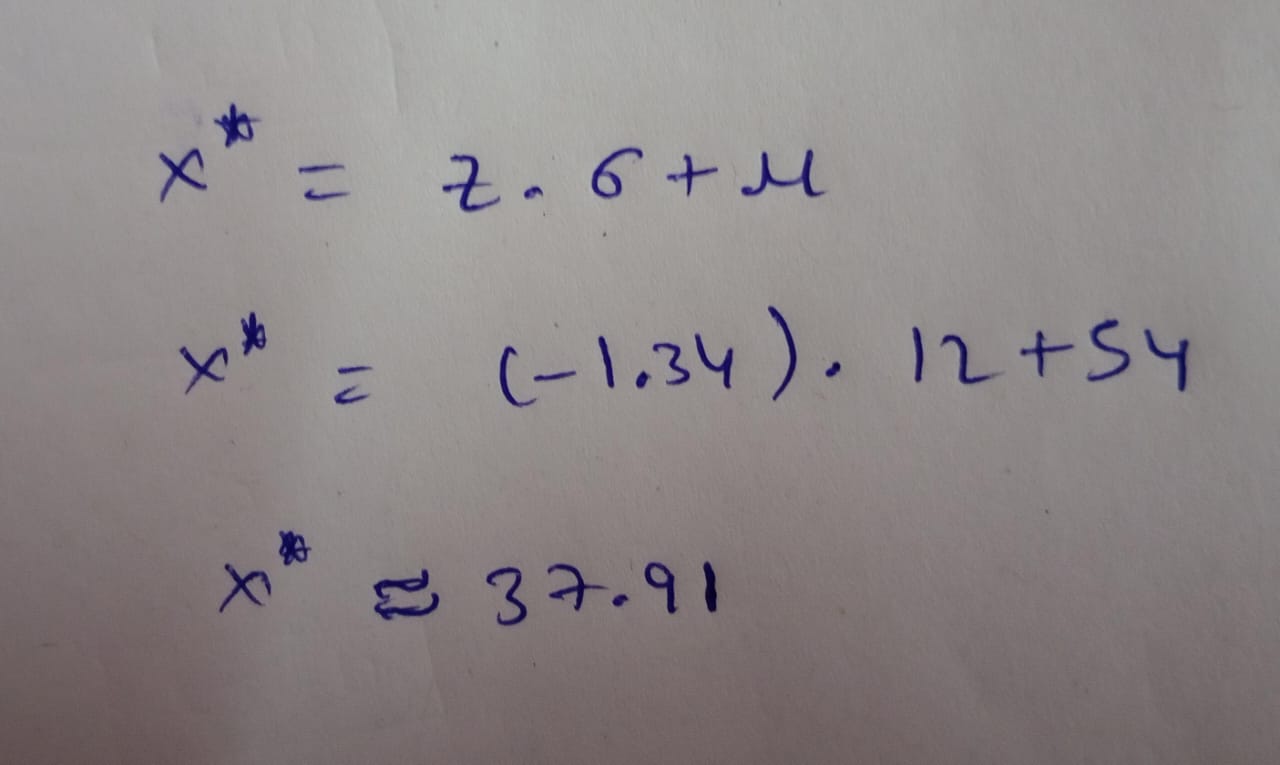 x* = z. σ + μ
x* = (-1.34). 12 + 54
x* ≈ 37.91